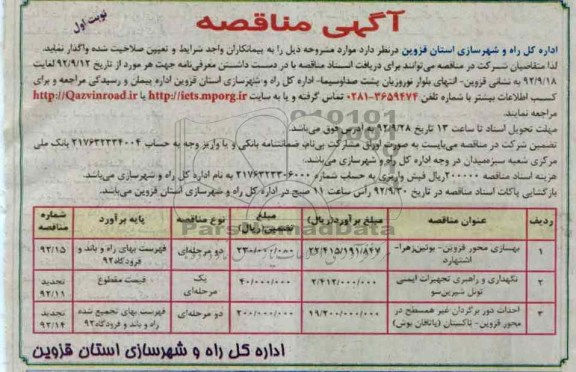 آگهی مناقصه
نوبت اول
اداره کل راه و شهرسازی استان قزوین درنظر دارد موارد مشروحه ذیل را به پیمانکاران واجد شرایط و تعیین صلاحیت شده واگذار نماید.
لذا متقاضیان شرکت در مناقصه می‌توانند برای دریافت اسناد مناقصه با در دست داشتن معرفی‌نامه جهت هر مورد از تاریخ ۹۲/۹/۱۲ لغایت
۹۲/۹/۱۸ به نشانی قزوین- انتهای بلوار نوروزیان پشت صداوسیما- اداره کل راه و شهرسازی استان قزوین اداره پیمان و رسیدگی مراجعه و برای
کسب اطلاعات بیشتر با شماره تلفن ۳۶۵۹۴۷۴-۰۲۸۱ تماس گرفته و یا به سایت http://iets.mporg.ir یا http://Qazvinroad.ir
مراجعه نمایند.
مهلت تحویل اسناد تا ساعت ۱۳ تاریخ ۹۲/۹/۲۸ به آدرس فوق می‌باشد.
تضمین شرکت در مناقصه می‌بایست به صورت اوراق مشارکت بی‌نام، ضمانتنامه بانکی و یا واریز وجه به حساب ۲۱۷۶۳۲۲۳۴۰۰۴ بانک ملی
مرکزی شعبه سبزه‌میدان در وجه اداره کل راه و شهرسازی می‌باشد.
هزینه اسناد مناقصه ۲۰۰۰۰۰ ریال فیش واریزی به حساب شماره ۲۱۷۶۳۲۲۳۰۶۰۰۰ به نام اداره کل راه و شهرسازی می‌باشد.
بازگشایی پاکات اسناد مناقصه در تاریخ ۹۲/۹/۳۰ رأس ساعت ۱۱ صبح در اداره کل راه و شهرسازی استان قزوین می‌باشد.
ردیف عنوان مناقصه مبلغ برآورد (ریال) مبلغ تضمین (ریال) نوع مناقصه پایه برآورد شماره مناقصه
۱ بهسازی محور قزوین- بوئین‌زهرا- اشتهارد ۲۲/۴۱۵/۱۹۱/۸۴۷ ۲۳۰/۰۰۰/۰۰۰ دو مرحله‌ای فهرست بهای راه و باند و فرودگاه ۹۲ ۹۲/۱۵
۲ نگهداری و راهبری تجهیزات ایمنی تونل شیرین‌سو ۲/۴۱۲/۰۰۰/۰۰۰ ۴۰/۰۰۰/۰۰۰ یک مرحله‌ای قیمت مقطوع تجدید ۹۲/۱۱
۳ احداث دور برگردان غیر همسطح در محور قزوین- تاکستان (پاتافان بوش) ۱۹/۲۰۰/۰۰۰/۰۰۰ ۲۰۰/۰۰۰/۰۰۰ دو مرحله‌ای فهرست بهای تجمیع شده راه و باند و فرودگاه ۹۲ تجدید ۹۲/۱۴
اداره کل راه و شهرسازی استان قزوین